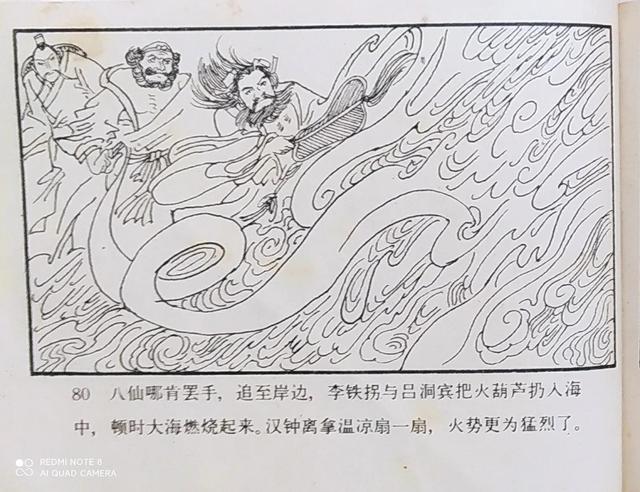 80 八仙哪肯罢手，追至岸边，李铁拐与吕洞宾把火葫芦扔入海
中，顿时大海燃烧起来。汉钟离拿温凉扇一扇，火势更为猛烈了。
REDMI NOTE 8
AI QUAD CAMERA